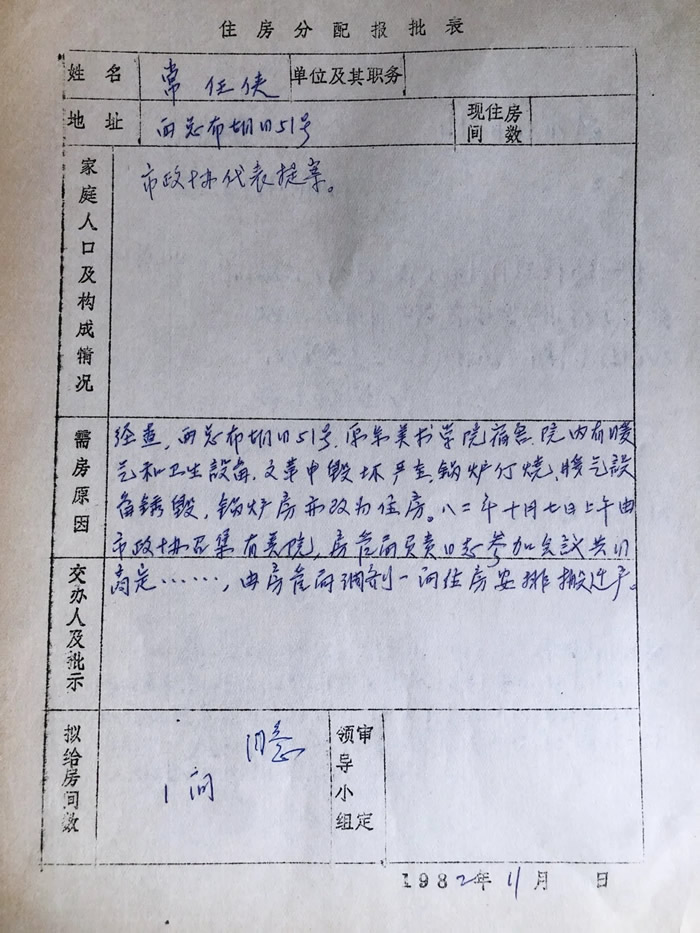 住房分配报批表
姓名 常任侠 单位及其职务
地址 西总布胡同51号 现住房间数
家庭人口及构成情况 市政协代表提案。
需房原因
经查，西总布胡同51号，原系美术学院宿舍，院内有暖
气和卫生設备，文革中毁坏严重，锅炉
暖气設
备锈毁，锅炉房亦改为住房。八二年十月七日上午由
市政协召集有美院，房管局负责同志参加会议共同
商定……，由房管局调剂一间住房安排搬迁户。
交办人及批示
拟给房间数 1间 同意
领导小组审定
1982年11月 日